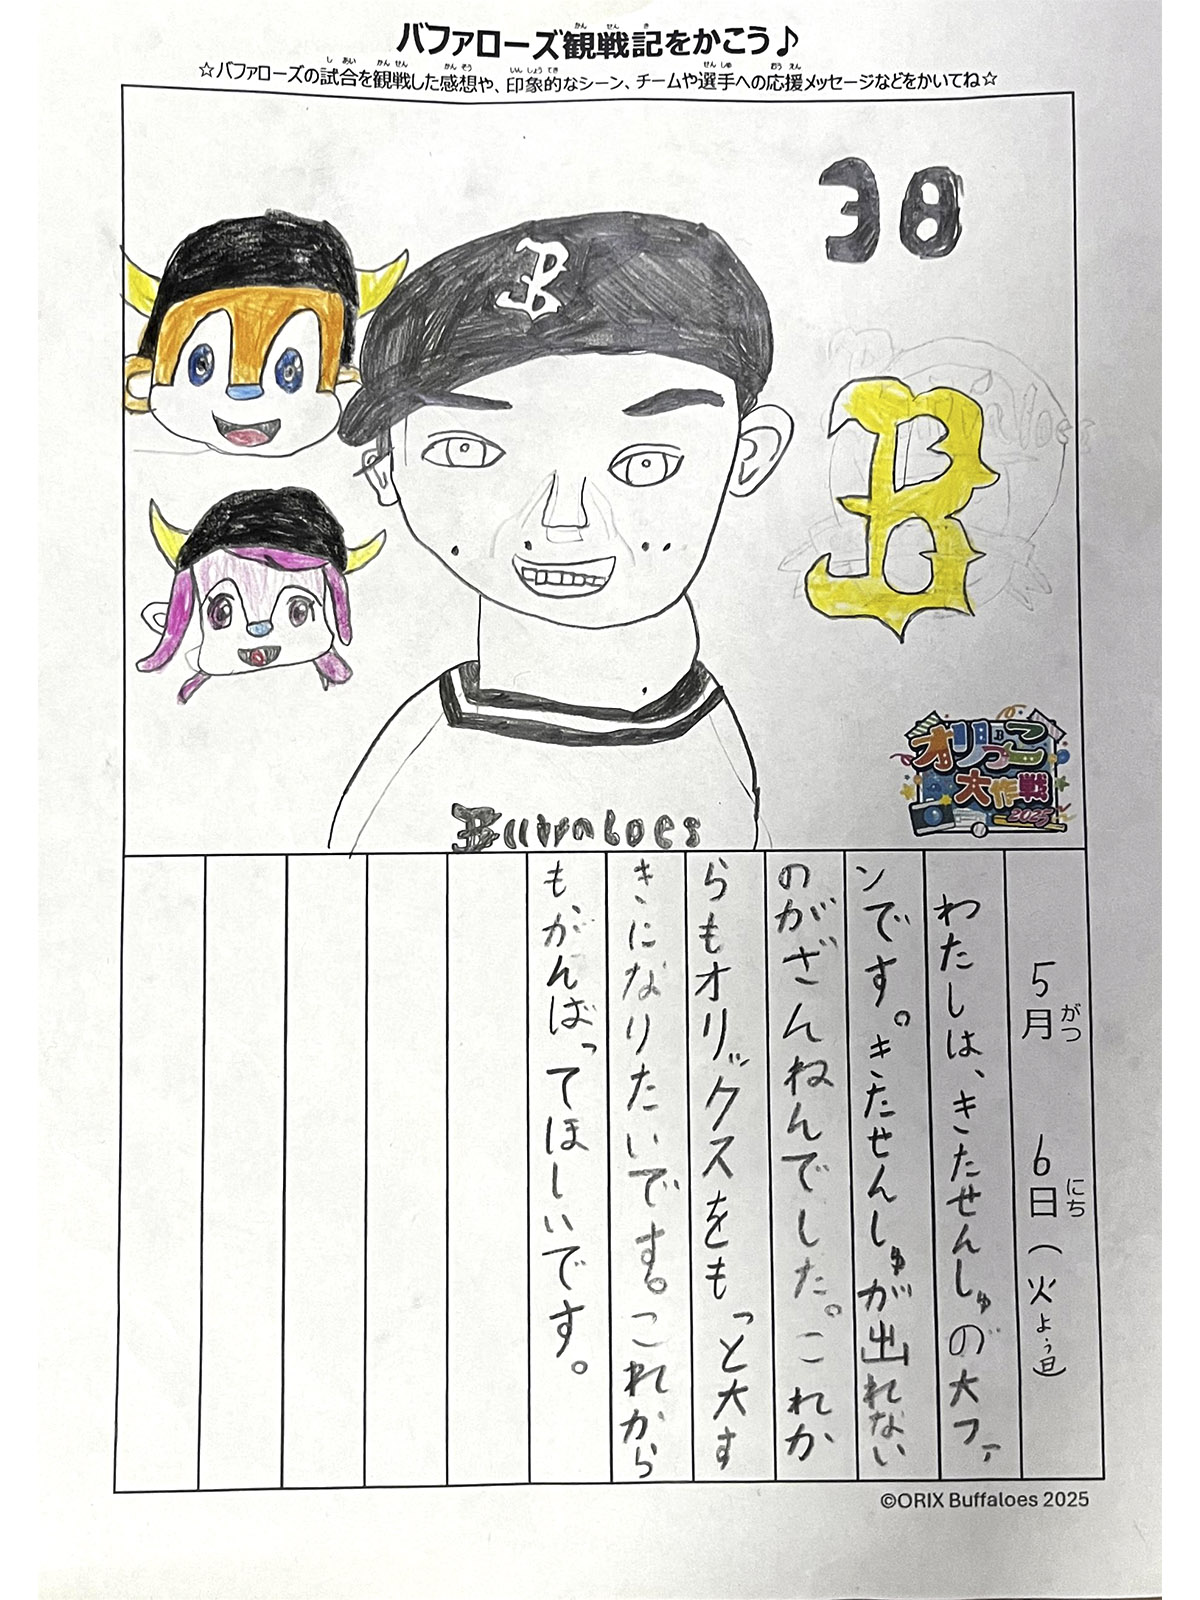 バファローズ観戦記をかこう♪
☆バファローズの試合を観戦した感想や、印象的なシーン、チームや選手への応援メッセージなどをかいてね☆
38
B
B
Buffaloes
オリっこ
大作戦
2025
5月 6日(火よう日)
わたしは、きたせんしゅの大ファ
ンです。きたせんしゅが出れない
のがざんねんでした。これか
らもオリックスをもっと大す
きになりたいです。これから
も、がんばってほしいです。
©ORIX Buffaloes 2025